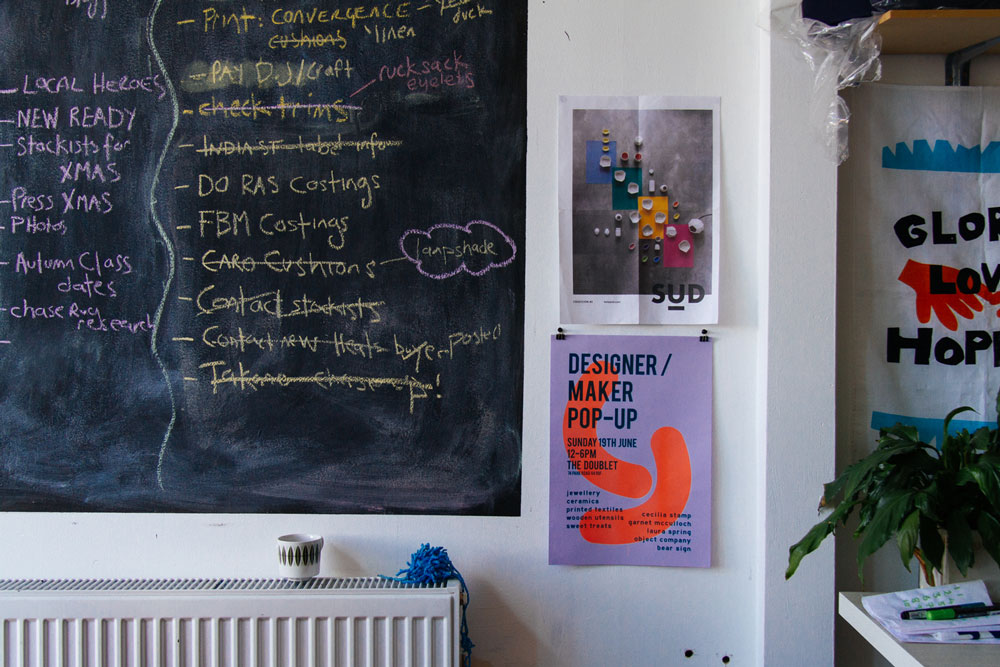 LOCAL HEROES
NEW READY
Stockists for
XMAS
Press XMAS
PHotos
Autumn Class
dates
chase Rug
research
Print: CONVERGENCE -
cushions
linen
duck
PAY DJ/Craft
rucksack
eyelets
check trims
INDIA ST labels info
DO RAS Costings
FBM Costings
CARO Cushions
lampshade
Contact stockists
Contact new Heals buyer-posted
SUD
DESIGNER/
MAKER
POP-UP
SUNDAY 19TH JUNE
12-6PM
THE DOUBLET
jewellery
ceramics
printed textiles
wooden utensils
sweet treats
cecilia stamp
garnet mcculloch
laura spring
object company
bear sign
GLOR
LOV
HOP